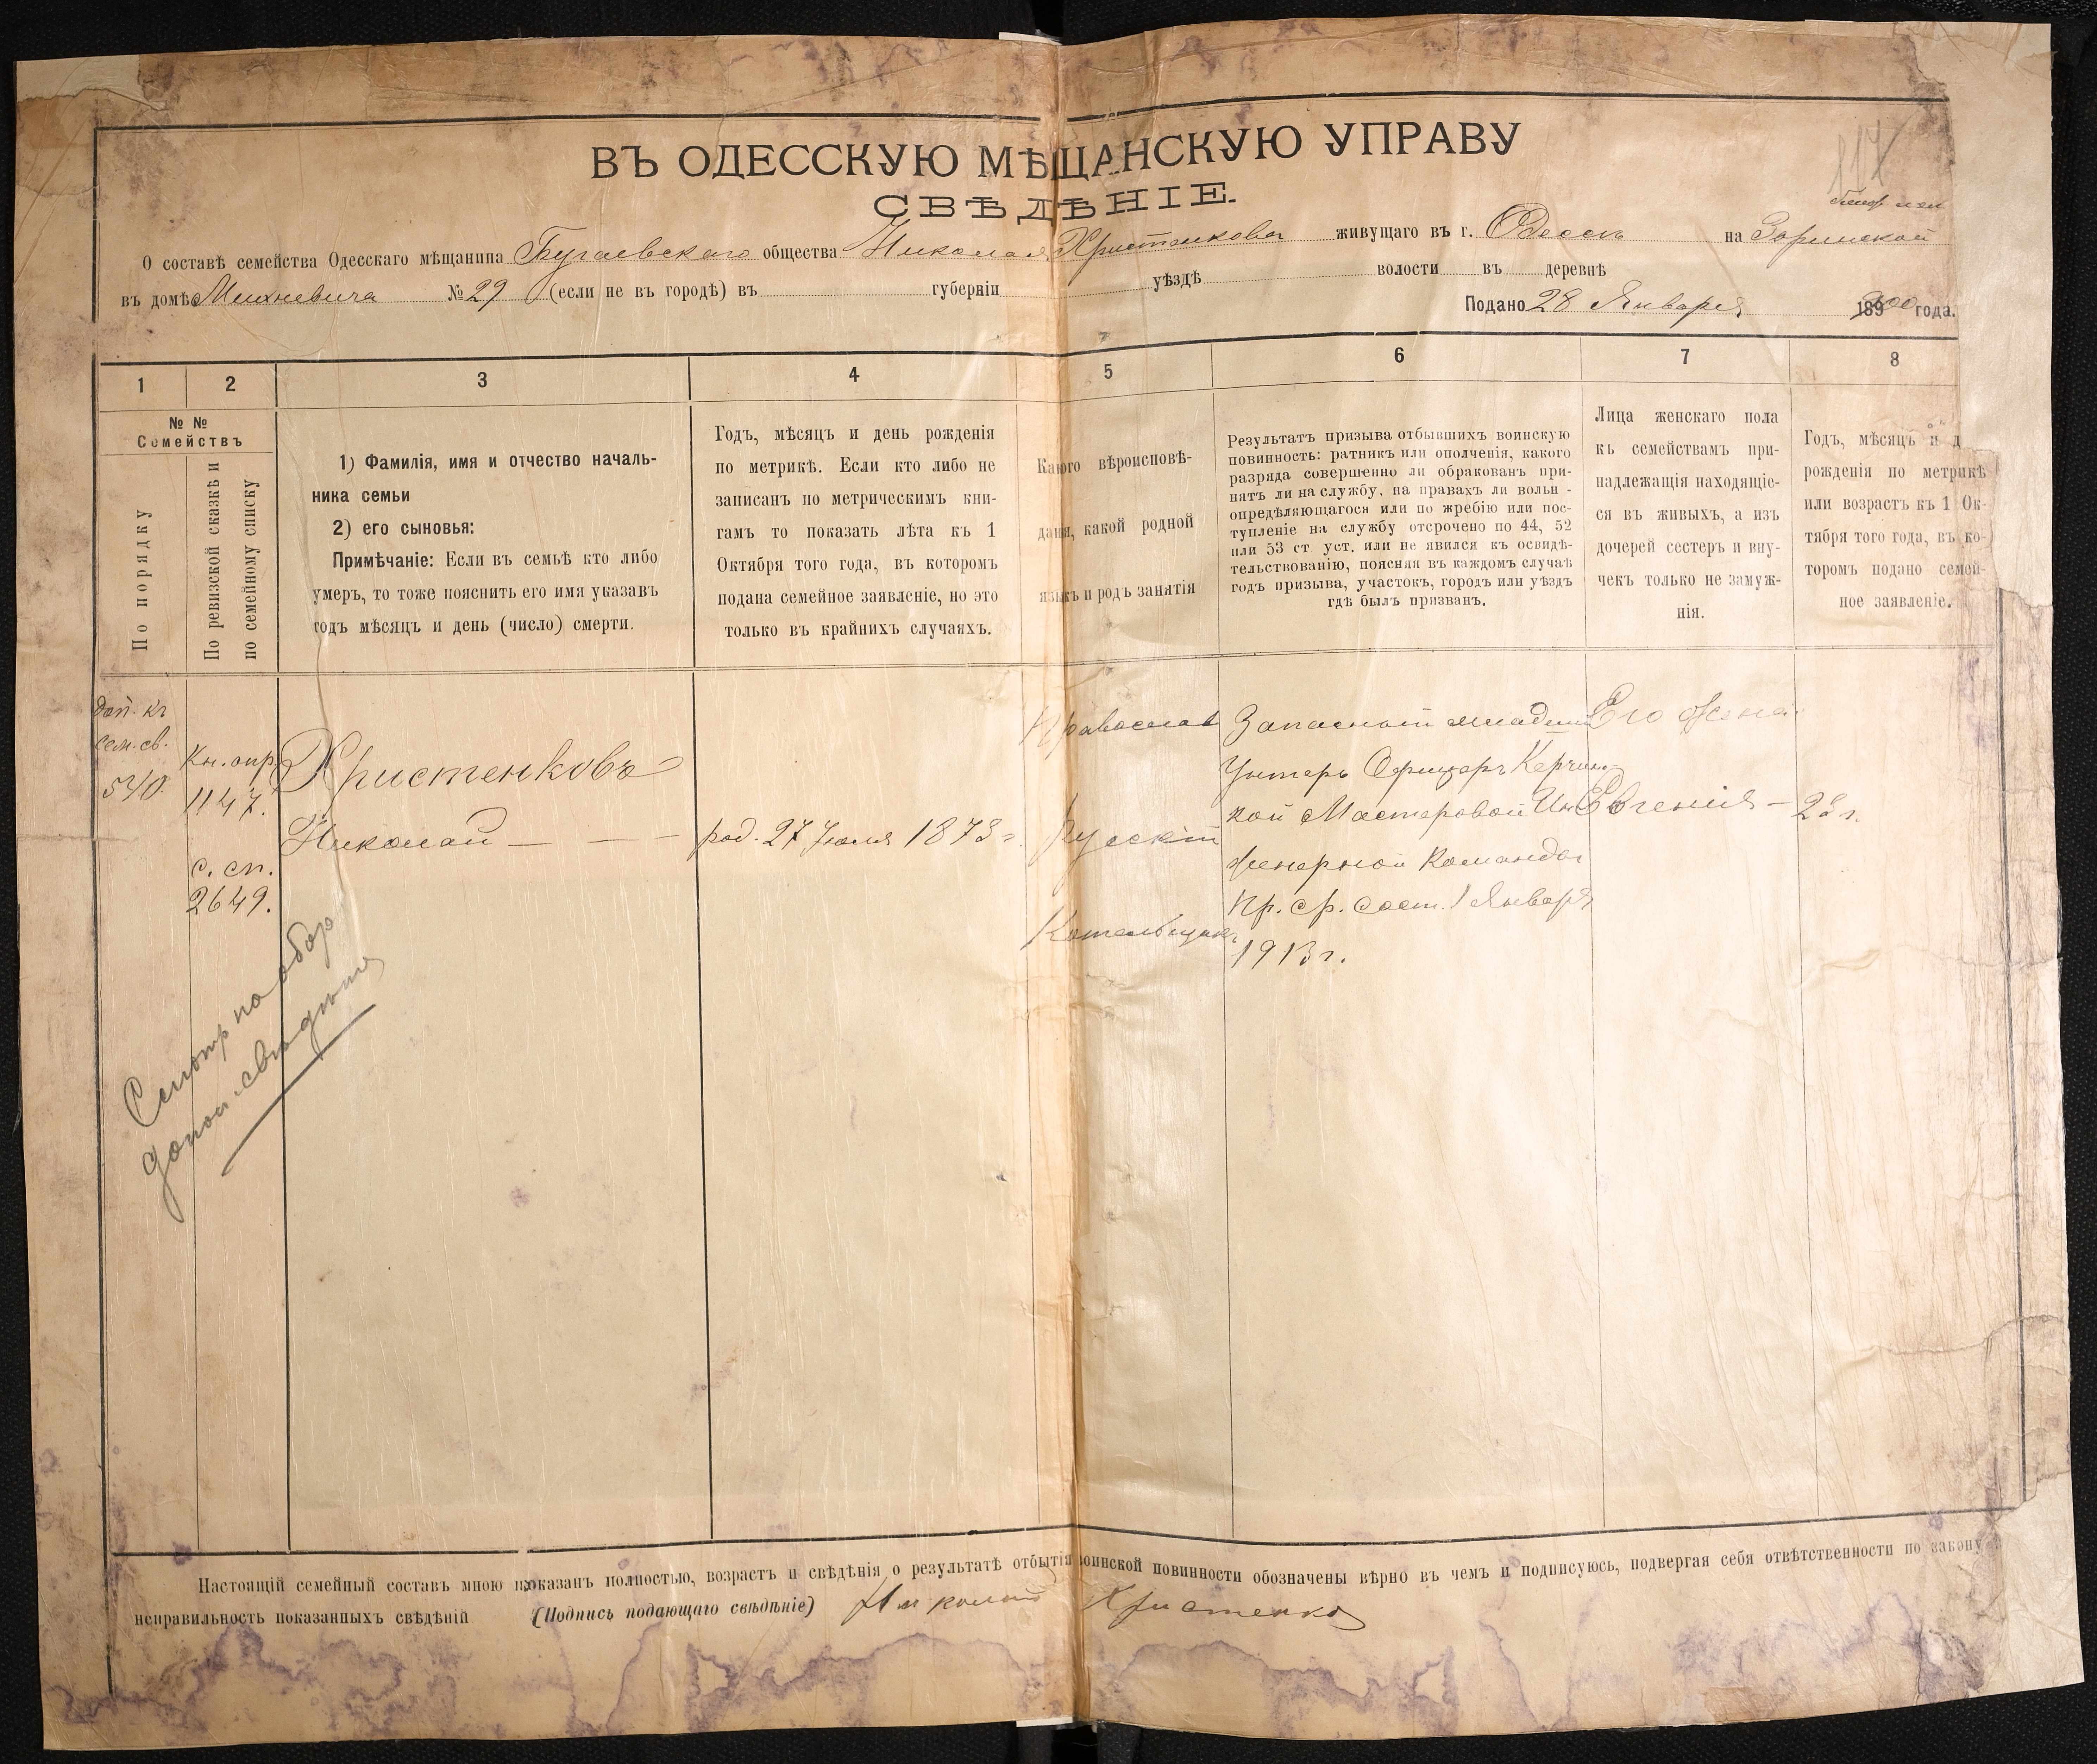 117
ВЪ ОДЕССКУЮ МѢЩАНСКУЮ УПРАВУ
СВѢДѢНІЕ.
О составѣ семейства Одесскаго мѣщанина Бугаевскаго общества Николая Христенкова живущаго въ г. Одессѣ на
въ домѣ Михневича № 29 (если не въ городѣ) въ губерніи уѣздѣ волости въ деревнѣ
Подано 28 Января 1900 года.
1 2 3 4 5 6 7 8
№ №
Семействъ
По порядку
По ревизской сказкѣ и
по семейному списку
1) Фамилія, имя и отчество началь-
ника семьи
2) его сыновья:
Примѣчаніе: Если въ семьѣ кто либо
умеръ, то тоже пояснить его имя указавъ
годъ мѣсяцъ и день (число) смерти.
Годъ, мѣсяцъ и день рожденія
по метрикѣ. Если кто либо не
записанъ по метрическимъ кни-
гамъ то показать лѣта къ 1
Октября того года, въ которомъ
подана семейное заявленіе, но это
только въ крайнихъ случаяхъ.
Какого вѣроисповѣ-
данія, какой родной
языкъ и родъ занятія
Результатъ призыва отбывшихъ воинскую
повинность: ратникъ или ополченія, какого
разряда совершенно ли обракованъ при-
нятъ ли на службу, на правахъ ли вольн -
опредѣляющагося или по жребію или пос-
тупленіе на службу отсрочено по 44, 52
или 53 ст уст. или не явился къ освидѣ-
тельствованію, поясняя въ каждомъ случаѣ
годъ призыва, участокъ, городъ или уѣздъ
гдѣ былъ призванъ.
Лица женскаго пола
къ семействамъ при-
надлежащія находящіе-
ся въ живыхъ, а изъ
дочерей сестеръ и вну-
чекъ только не замуж-
нія.
Годъ, мѣсяцъ и д
рожденія по метрикѣ
или возрастъ къ 1 Ок-
тября того года, въ ко-
торомъ подано семей-
ное заявленіе.
доп. къ
сем. св.
540.
Кн. опр.
1147.
с. сп.
2649.
Христенковъ
Николай — — —
род. 27 Іюля 1873 г.
Православ
Русскій
Котельщикъ
Запасный младшій
Унтеръ Офицеръ Керчинс
кой Мастеровой Ин
женерной Команды
Пр. ср. сост. 1 Января
1913 г.
Его жена
Евгенія —
Смотр на обор
допол. свѣдѣніе
Настоящій семейный составъ мною показанъ полностью, возрастъ и свѣдѣнія о результатѣ отбытія воинской повинности обозначены вѣрно въ чемъ и подписуюсь, подвергая себя отвѣтственности по закону
неправильность показанныхъ свѣдѣній (Подпись подающаго свѣдѣніе) Николай Христенко